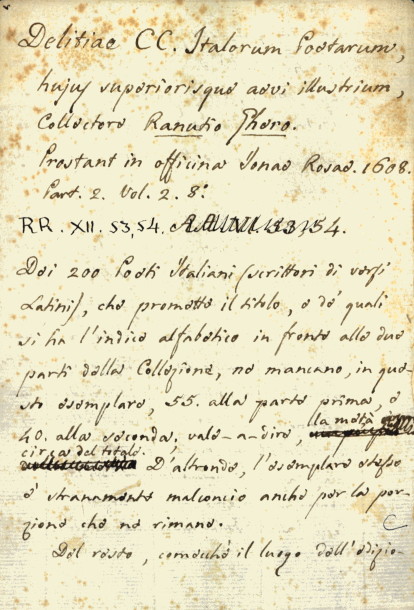 Delitiae CC. Italorum Poetarum,
hujus superiorisque aevi illustrium,
Collectore Ranutio Ghero.
Prostant in officina Jonae Rosae. 1608.
Part. 2. Vol. 2. 8º
RR. XII. 53,54.
Dei 200 Poeti Italiani (scrittori di versi
Latini), che promette il titolo, e de' quali
si ha l'indice alfabetico in fronte alle due
parti della Collezione, ne mancano, in que-
sto esemplare, 55. alla parte prima, e
40. alla seconda; vale-a-dire, la metà
circa del totale. D'altronde, l'esemplare stesso
è stranamente malconcio anche per la por-
zione che ne rimane.
Del resto, comechè il luogo dell'edizio-